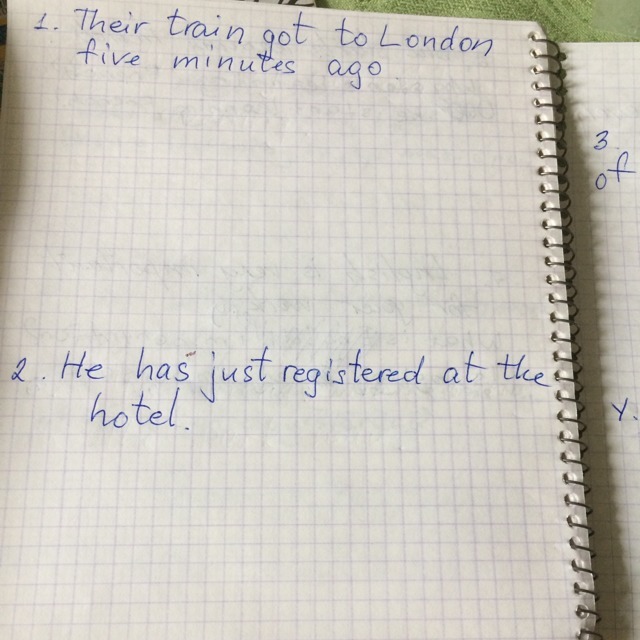 1. Their train got to London
five minutes ago
2. He has just registered at the
hotel.
3.
of
y.